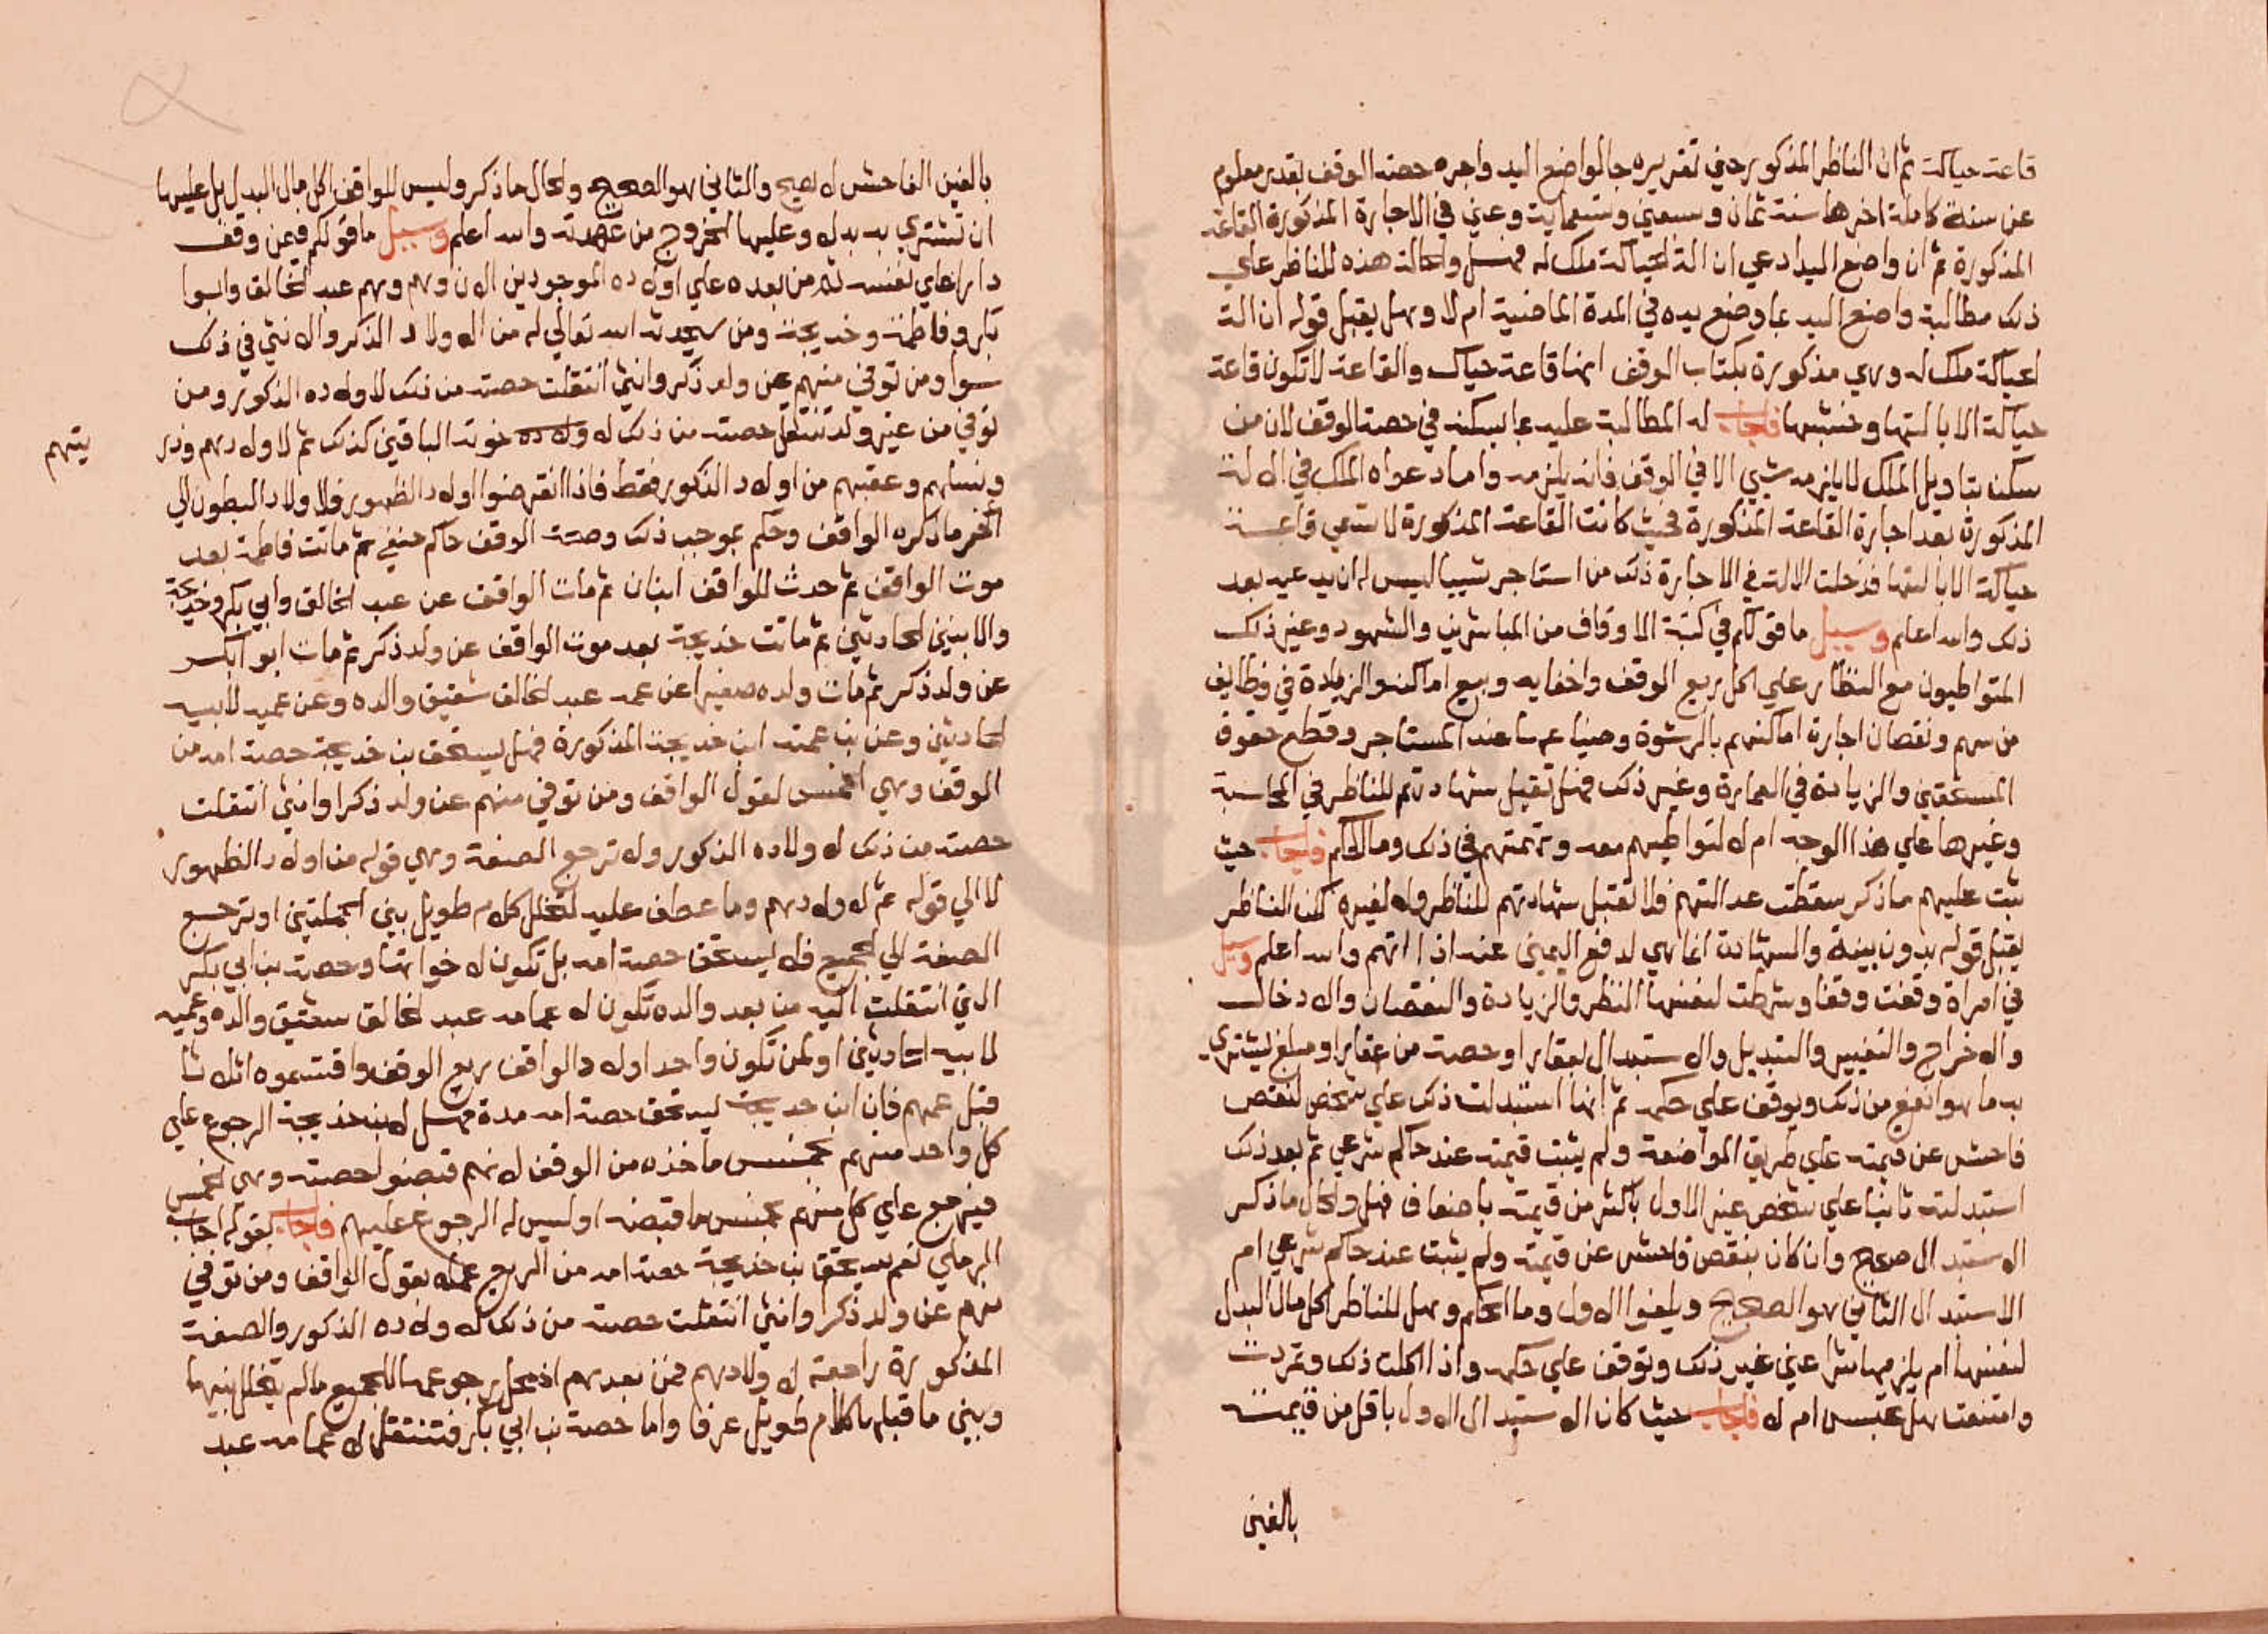 قاعة حياكة ثم ان الناظر المذكور حين تقريره جا لواضع اليد واجره حصة الوقف بقدر معلوم
عن سنة كاملة اخرها سنة ثمان وسبعين وتسعماية وعين في الاجارة المذكورة القاعة
المذكورة ثم ان واضع اليد ادعي ان الة الحياكة ملك له فهل والحالة هذه للناظر علي
ذلك مطالبة واضع اليد بما وضع يده في المدة الماضية ام لا وهل يقبل قوله ان الة
الحياكة ملك له وهي مذكورة بكتاب الوقف انها قاعة حياك والقاعة لا تكون قاعة
حياكة الا بالتها وخشبها فاجاب له المطالبة عليه بما يسكنه في حصة الوقف لان من
سكن بتاويل الملك لا يلزمه شيي الا في الوقف فانه يلزمه واما دعواه الملك في الالة
المذكورة بعد اجارة القاعة المذكورة فحيث كانت القاعة المذكورة لا تسمي قاعة
حياكة الا بالتها فدخلت الالة في الاجارة ذلك من استاجر شييا ليس له ان يدعيه بعد
ذلك والله اعلم وسيل ما قولكم في كتبة الاوقاف من المباشرين والشهود وغير ذلك
المتواطيون مع النظار علي اكل ريع الوقف واخفايه وبيع اماكنه والزيادة في وظايف
من سهم ونقصان اجارة اماكنهم بالرشوة وضياع ما عند المستاجر وقطع حقوق
المستحقين والزيادة في العمارة وغير ذلك فهل تقبل شهادتهم للناظر في المحاسبة
وغيرها علي هذا الوجه ام لا لتواطيهم معه وتهمتهم في ذلك وما الحكم فاجاب حيث
ثبت عليهم ما ذكر سقطت عدالتهم فلا تقبل شهادتهم للناظر ولا لغيره لكن الناظر
يقبل قوله بدون بينة والشهادة انما هي لدفع اليمين عنه اذا اتهم والله اعلم وسيل
في امراة وقفت وقفا وشرطت لنفسها النظر والزيادة والنقصان والادخال
والاخراج والتغيير والتبديل والاستبدال بعقار او حصة من عقار او مبلغ ليشتري
به ما هو انفع من ذلك ويوقف علي حكمه ثم انها استبدلت ذلك علي شخص لنقص
فاحش عن قيمته علي طريق المواضعة ولم يثبت قيمته عند حاكم شرعي ثم بعد ذلك
استبدلته ثانيا علي شخص غير الاول باكثر من قيمته باضعاف فهل والحال ما ذكر
الاستبدال صحيح وان كان بنقص فاحش عن قيمته ولم يثبت عند حاكم شرعي ام
الاستبدال الثاني هو الصحيح ويلغوا الاول وما الحكم وهل للناظر اكل مال البدل
لنفسها ام يلزمها شرا عين غير ذلك وتوقف علي حكمه واذا اكلت ذلك وتمردت
وامتنعت هل تحبس ام لا فاجاب حيث كان الاستبدال الاول باقل من قيمته
بالغبن
بالغبن الفاحش لا يصح والثاني هو الصحيح والحال ما ذكر وليس للواقف اكل مال البدل بل عليها
ان تشتري به بدله وعليها الخروج من عهدته والله اعلم وسيل ما قولكم فيمن وقف
دارا علي نفسه ثم من بعده علي اولاده الموجودين الان وهم وهم عبد الخالق وابوا
بكر وفاطمة وخديجة ومن سيحدثه الله تعالي له من الاولاد الذكر والانثي في ذلك
سوا ومن توفي منهم عن ولد ذكر وانثي انتقلت حصته من ذلك لاولاده الذكور ومن
توفي من غير ولد تنتقل حصته من ذلك له ولاده خوته الباقين كذلك ثم لاولادهم وذر
يتهم
ونسلهم وعقبهم من اولاد الذكور فقط فاذا انقرضوا اولاد الظهور فلاولاد البطون الي
اخر ما ذكره الواقف وحكم بموجب ذلك وصحة الوقف حاكم حنفي ثم ماتت فاطمة بعد
موت الواقف ثم حدث للواقف ابنان ثم مات الواقف عن عبد الخالق وابي بكر وخديجة
والابنين الحادثين ثم ماتت خديجة بعد موت الواقف عن ولد ذكر ثم مات ابو ابكر
عن ولد ذكر ثم مات ولده صغيرا عن عمه عبد الخالق شقيق والده وعن عميه لابيه
الحادثين وعن بن عمته ابن خديجة المذكورة فهل يستحق بن خديجة حصة امه من
الوقف وهي الخمس لقول الواقف ومن توفي منهم عن ولد ذكرا وانثي انتقلت
حصته من ذلك لاولاده الذكور ولا ترجع الصفة وهي قوله من اولاد الظهور
لا الي قوله ثم لاولادهم وما عطف عليه لتخلل كلام طويل بين الجملتين او ترجع
الصفة الي الجميع فلا يستحق حصة امه بل تكون لاخوانها وحصة بن ابي بكر
التي انتقلت اليه من بعد والده تكون لاعمامه عبد الخالق شقيق والده وعميه
لابيه الحادثين او لمن تكون واحد اولاد الواقف ريع الوقف واقتسموه اثلاثا
قبل عمهم فان ابن خديجة ليستحق حصة امه مدة فهل لابن خديجة الرجوع علي
كل واحد منهم بخمس ما اخذه من الوقف لانهم قبضوا حصته وهي الخمس
فيرجع علي كل منهم بخمس ما قبضه او ليس له الرجوع عليهم فاجاب بقوله اجاب
الرملي نعم يستحق بن خديجة حصة امه من الريع عملا بقول الواقف ومن توفي
منهم عن ولد ذكر وانثي انتقلت حصته من ذلك لاولاده الذكور والصفة
المذكورة راجعة لاولادهم فمن بعدهم اذ محل رجوعها للجميع ما لم يتخلل بينها
وبين ما قبلها كلام طويل عرفا واما حصة بن ابي بكر فتنتقل لاعمامه عبد